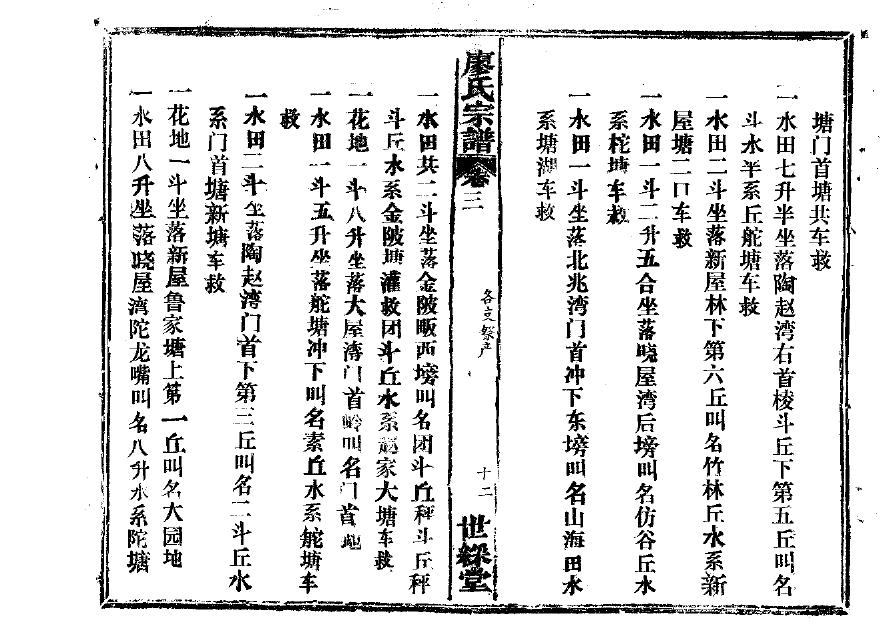 塘门首塘共车救
一水田七升半坐落陶赵湾右首棱斗丘下第五丘叫名
斗水半系丘舵塘车救
一水田二斗坐落新屋林下第六丘叫名竹林丘水系新
屋塘二口车救
一水田一斗二升五合坐落晓屋湾后塝叫名仿谷丘水
系柁塘车救
一水田一斗坐落北兆湾门首冲下东塝叫名山海田水
系塘湖车救
廖氏宗譜 卷三 各支祭产 十二 世綵堂
一水田共二斗坐落金陂畈西塝叫名团斗丘秤斗丘秤
斗丘水系金陂塘灌救团斗丘水系 家大塘车救
一花地一斗八升坐落大屋湾门首岭叫名门首地
一水田一斗五升坐落舵塘冲下叫名素丘水系舵塘车
救
一水田二斗坐落陶赵湾门首下第三丘叫名二斗丘水
系门首塘新塘车救
一花地一斗坐落新屋鲁家塘上第一丘叫名大园地
一水田八升坐落晓屋湾陀龙嘴叫名八升水系陀塘